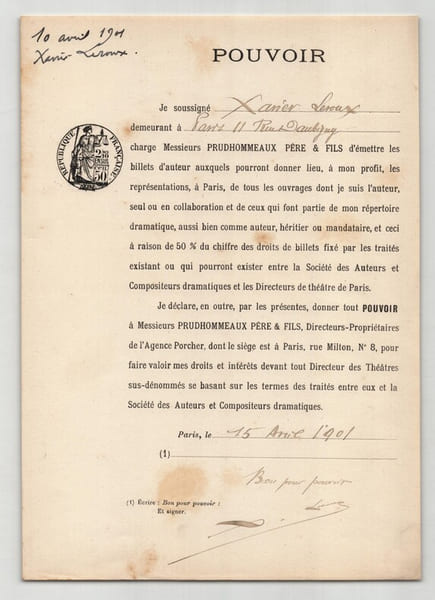 10 avril 1901
Xavier Leroux.
POUVOIR
Je soussigné Xavier Leroux
demeurant à Paris 11
RÉPUBLIQUE FRANÇAISE
2 FR
50
charge Messieurs PRUDHOMMEAUX PÈRE & FILS d'émettre les
billets d'auteur auxquels pourront donner lieu, à mon profit, les
représentations, à Paris, de tous les ouvrages dont je suis l'auteur,
seul ou en collaboration et de ceux qui font partie de mon répertoire
dramatique, aussi bien comme auteur, héritier ou mandataire, et ceci
à raison de 50 % du chiffre des droits de billets fixé par les traités
existant ou qui pourront exister entre la Société des Auteurs et
Compositeurs dramatiques et les Directeurs de théâtre de Paris.
Je déclare, en outre, par les présentes, donner tout POUVOIR
à Messieurs PRUDHOMMEAUX PÈRE & FILS, Directeurs-Propriétaires
de l'Agence Porcher, dont le siège est à Paris, rue Milton, N° 8, pour
faire valoir mes droits et intérêts devant tout Directeur des Théâtres
sus-dénommés se basant sur les termes des traités entre eux et la
Société des Auteurs et Compositeurs dramatiques.
Paris, le 15 Avril 1901
(1)
Bon pour pouvoir
(1) Écrire : Bon pour pouvoir :
Et signer.